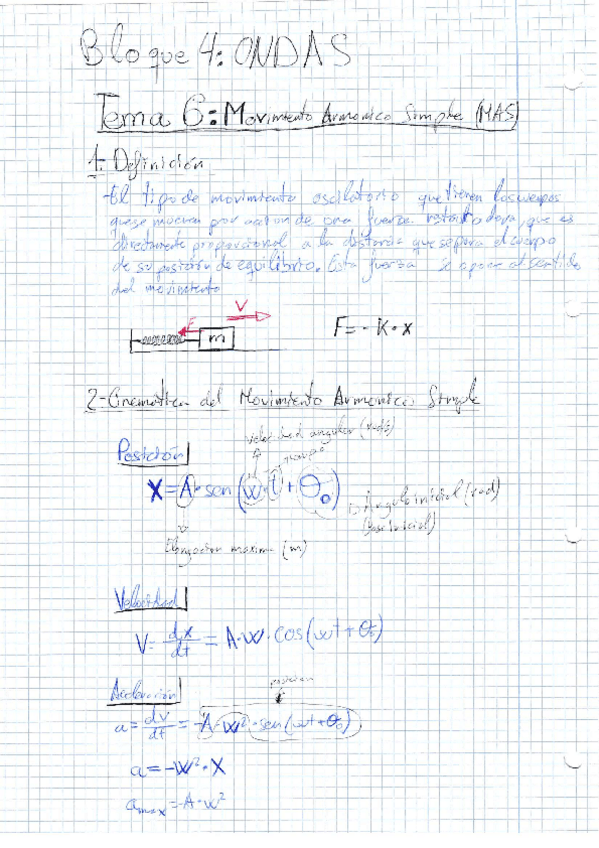 Bloque 4: ONDAS
Tema 6: Movimiento Armonico Simple (MAS)
1. Definición
-El tipo de movimiento oscilatorio que tienen los cuerpos
que se mueven por acción de una fuerza restauradora, que es
directamente proporcional a la distancia que separa el cuerpo
de su posición de equilibrio. Esta fuerza se opone al sentido
del movimiento
V
F
m
F = - K · x
2-Cinemática del Movimiento Armonico Simple
velocidad angular (rad/s)
tiempo
Posición
X = A · sen (w · t + θ₀)
Ángulo inicial (rad)
(fase inicial)
Elongación maxima (m)
Velocidad
V = dx/dt = A · w · cos(wt + θ₀)
posición
Aceleración
a = dv/dt = -A · w² · sen(wt + θ₀)
a = -w² · X
amax = -A · w²